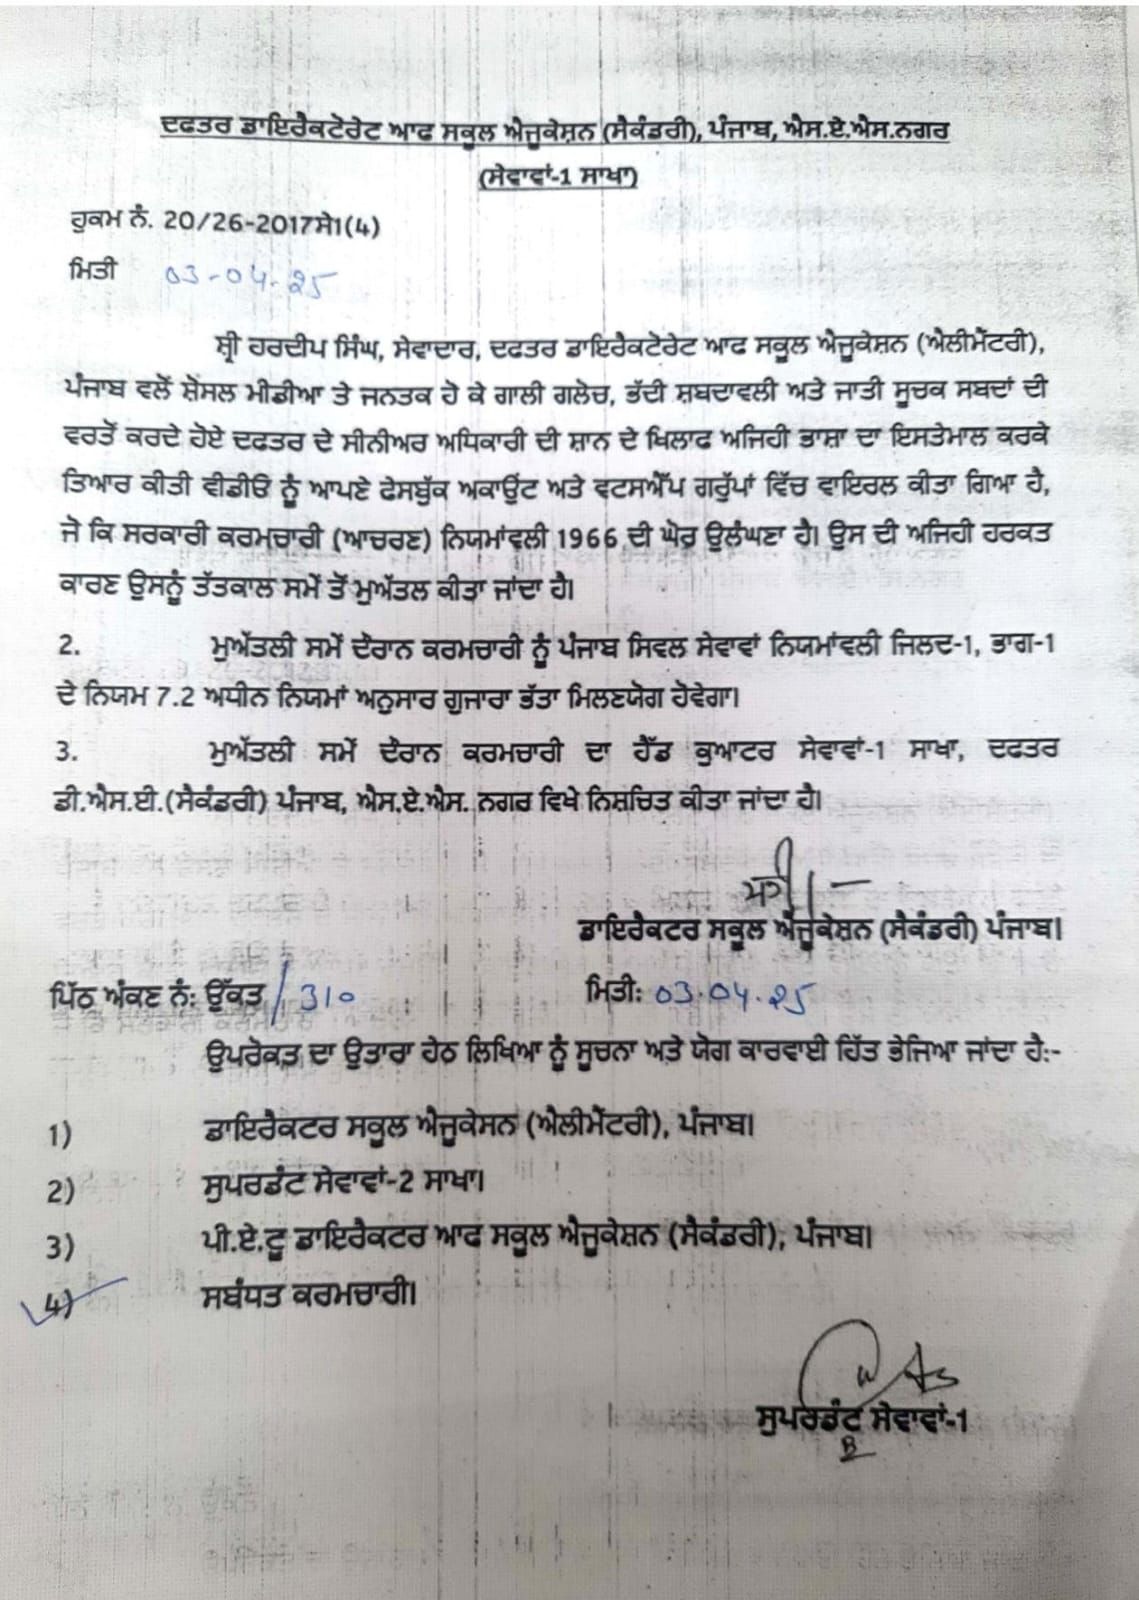 ਦਫਤਰ ਡਾਇਰੈਕਟੋਰੇਟ ਆਫ ਸਕੂਲ ਐਜੂਕੇਸ਼ਨ (ਸੈਕੰਡਰੀ), ਪੰਜਾਬ, ਐਸ.ਏ.ਐਸ.ਨਗਰ
(ਸੇਵਾਵਾਂ-1 ਸਾਖਾ)
ਹੁਕਮ ਨੰ. 20/26-2017ਸੇ1(4)
ਮਿਤੀ 03-04-25
ਸ਼੍ਰੀ ਹਰਦੀਪ ਸਿੰਘ, ਸੇਵਾਦਾਰ, ਦਫਤਰ ਡਾਇਰੈਕਟੋਰੇਟ ਆਫ ਸਕੂਲ ਐਜੂਕੇਸ਼ਨ (ਐਲੀਮੈਂਟਰੀ),
ਪੰਜਾਬ ਵਲੋਂ ਸ਼ੋਸਲ ਮੀਡੀਆ ਤੇ ਜਨਤਕ ਹੋ ਕੇ ਗਾਲੀ ਗਲੋਚ, ਭੱਦੀ ਸ਼ਬਦਾਵਲੀ ਅਤੇ ਜਾਤੀ ਸੂਚਕ ਸਬਦਾਂ ਦੀ
ਵਰਤੋਂ ਕਰਦੇ ਹੋਏ ਦਫਤਰ ਦੇ ਸੀਨੀਅਰ ਅਧਿਕਾਰੀ ਦੀ ਸ਼ਾਨ ਦੇ ਖਿਲਾਫ ਅਜਿਹੀ ਭਾਸ਼ਾ ਦਾ ਇਸਤੇਮਾਲ ਕਰਕੇ
ਤਿਆਰ ਕੀਤੀ ਵੀਡੀਓ ਨੂੰ ਆਪਣੇ ਫੇਸਬੁੱਕ ਅਕਾਉਂਟ ਅਤੇ ਵਟਸਐਪ ਗਰੁੱਪਾਂ ਵਿੱਚ ਵਾਇਰਲ ਕੀਤਾ ਗਿਆ ਹੈ,
ਜੋ ਕਿ ਸਰਕਾਰੀ ਕਰਮਚਾਰੀ (ਆਚਰਣ) ਨਿਯਮਾਂਵਲੀ 1966 ਦੀ ਘੋਰ ਉਲੰਘਣਾ ਹੈ। ਉਸ ਦੀ ਅਜਿਹੀ ਹਰਕਤ
ਕਾਰਣ ਉਸਨੂੰ ਤੱਤਕਾਲ ਸਮੇਂ ਤੋਂ ਮੁਅੱਤਲ ਕੀਤਾ ਜਾਂਦਾ ਹੈ।
2. ਮੁਅੱਤਲੀ ਸਮੇਂ ਦੌਰਾਨ ਕਰਮਚਾਰੀ ਨੂੰ ਪੰਜਾਬ ਸਿਵਲ ਸੇਵਾਵਾਂ ਨਿਯਮਾਂਵਲੀ ਜਿਲਦ-1, ਭਾਗ-1
ਦੇ ਨਿਯਮ 7.2 ਅਧੀਨ ਨਿਯਮਾਂ ਅਨੁਸਾਰ ਗੁਜਾਰਾ ਭੱਤਾ ਮਿਲਣਯੋਗ ਹੋਵੇਗਾ।
3. ਮੁਅੱਤਲੀ ਸਮੇਂ ਦੌਰਾਨ ਕਰਮਚਾਰੀ ਦਾ ਹੈੱਡ ਕੁਆਟਰ ਸੇਵਾਵਾਂ-1 ਸਾਖਾ, ਦਫਤਰ
ਡੀ.ਐਸ.ਈ.(ਸੈਕੰਡਰੀ) ਪੰਜਾਬ, ਐਸ.ਏ.ਐਸ. ਨਗਰ ਵਿਖੇ ਨਿਸ਼ਚਿਤ ਕੀਤਾ ਜਾਂਦਾ ਹੈ।
ਡਾਇਰੈਕਟਰ ਸਕੂਲ ਐਜੂਕੇਸ਼ਨ (ਸੈਕੰਡਰੀ) ਪੰਜਾਬ।
ਪਿੱਠ ਅੰਕਣ ਨੰ: ਉੱਕਤ/310 ਮਿਤੀ: 03.04.25
ਉਪਰੋਕਤ ਦਾ ਉਤਾਰਾ ਹੇਠ ਲਿਖਿਆ ਨੂੰ ਸੂਚਨਾ ਅਤੇ ਯੋਗ ਕਾਰਵਾਈ ਹਿੱਤ ਭੇਜਿਆ ਜਾਂਦਾ ਹੈ:-
1) ਡਾਇਰੈਕਟਰ ਸਕੂਲ ਐਜੂਕੇਸਨ (ਐਲੀਮੈਂਟਰੀ), ਪੰਜਾਬ।
2) ਸੁਪਰਡੰਟ ਸੇਵਾਵਾਂ-2 ਸਾਖਾ।
3) ਪੀ.ਏ.ਟੂ ਡਾਇਰੈਕਟਰ ਆਫ ਸਕੂਲ ਐਜੂਕੇਸ਼ਨ (ਸੈਕੰਡਰੀ), ਪੰਜਾਬ।
4) ਸਬੰਧਤ ਕਰਮਚਾਰੀ।
ਸੁਪਰਡੰਟ ਸੇਵਾਵਾਂ-1